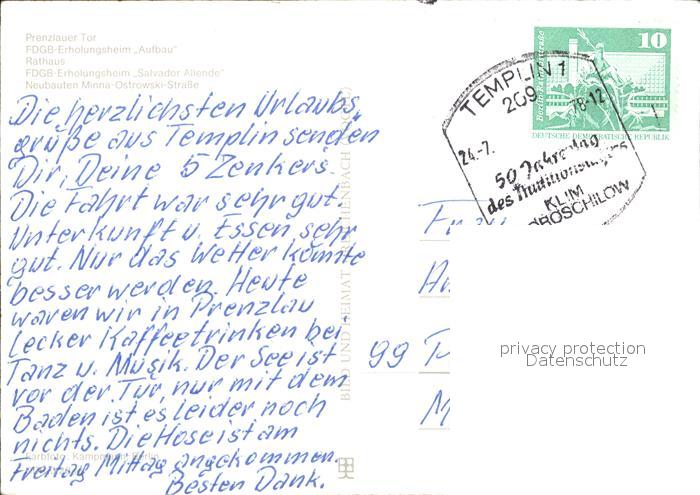 Prenzlauer Tor
FDGB-Erholungsheim „Aufbau"
Rathaus
FDGB-Erholungsheim „Salvador Allende"
Neubauten Minna-Ostrowski-Straße
Die herzlichsten Urlaubs
grüße aus Templin senden
Dir, Deine 5 Zenkers.
Die Fahrt war sehr gut.
Unterkunft u. Essen sehr
gut. Nur das Wetter könnte
besser werden. Heute
waren wir in Prenzlau
lecker Kaffeetrinken bei
Tanz u. Musik. Der See ist
vor der Tür, nur mit dem
Baden ist es leider noch
nichts. Die Hose ist am
Freitag Mittag angekommen.
Besten Dank.
Farbfoto: Kampmann, Berlin
BILD UND HEIMAT REICHENBACH
10
DEUTSCHE DEMOKRATISCHE REPUBLIK
TEMPLIN 1
209
24.-7. 78-12
50. Jahrestag
des
KLIM
WOROSCHILOW
Frau
99
privacy protection
Datenschutz